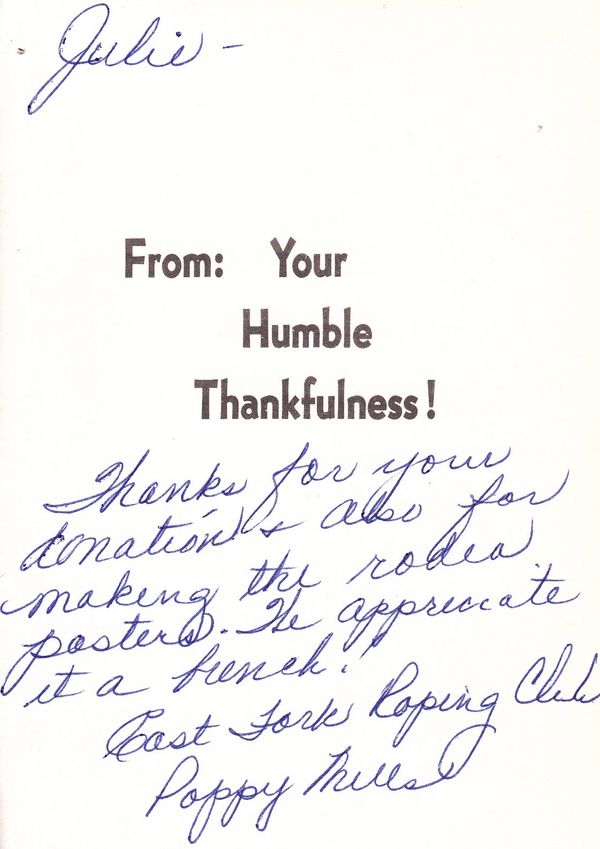 Julie -
From: Your
Humble
Thankfulness!
Thanks for your
donation & also for
making the rodeo
posters. We appreciate
it a bunch!
East Fork Roping Club
Poppy Mills